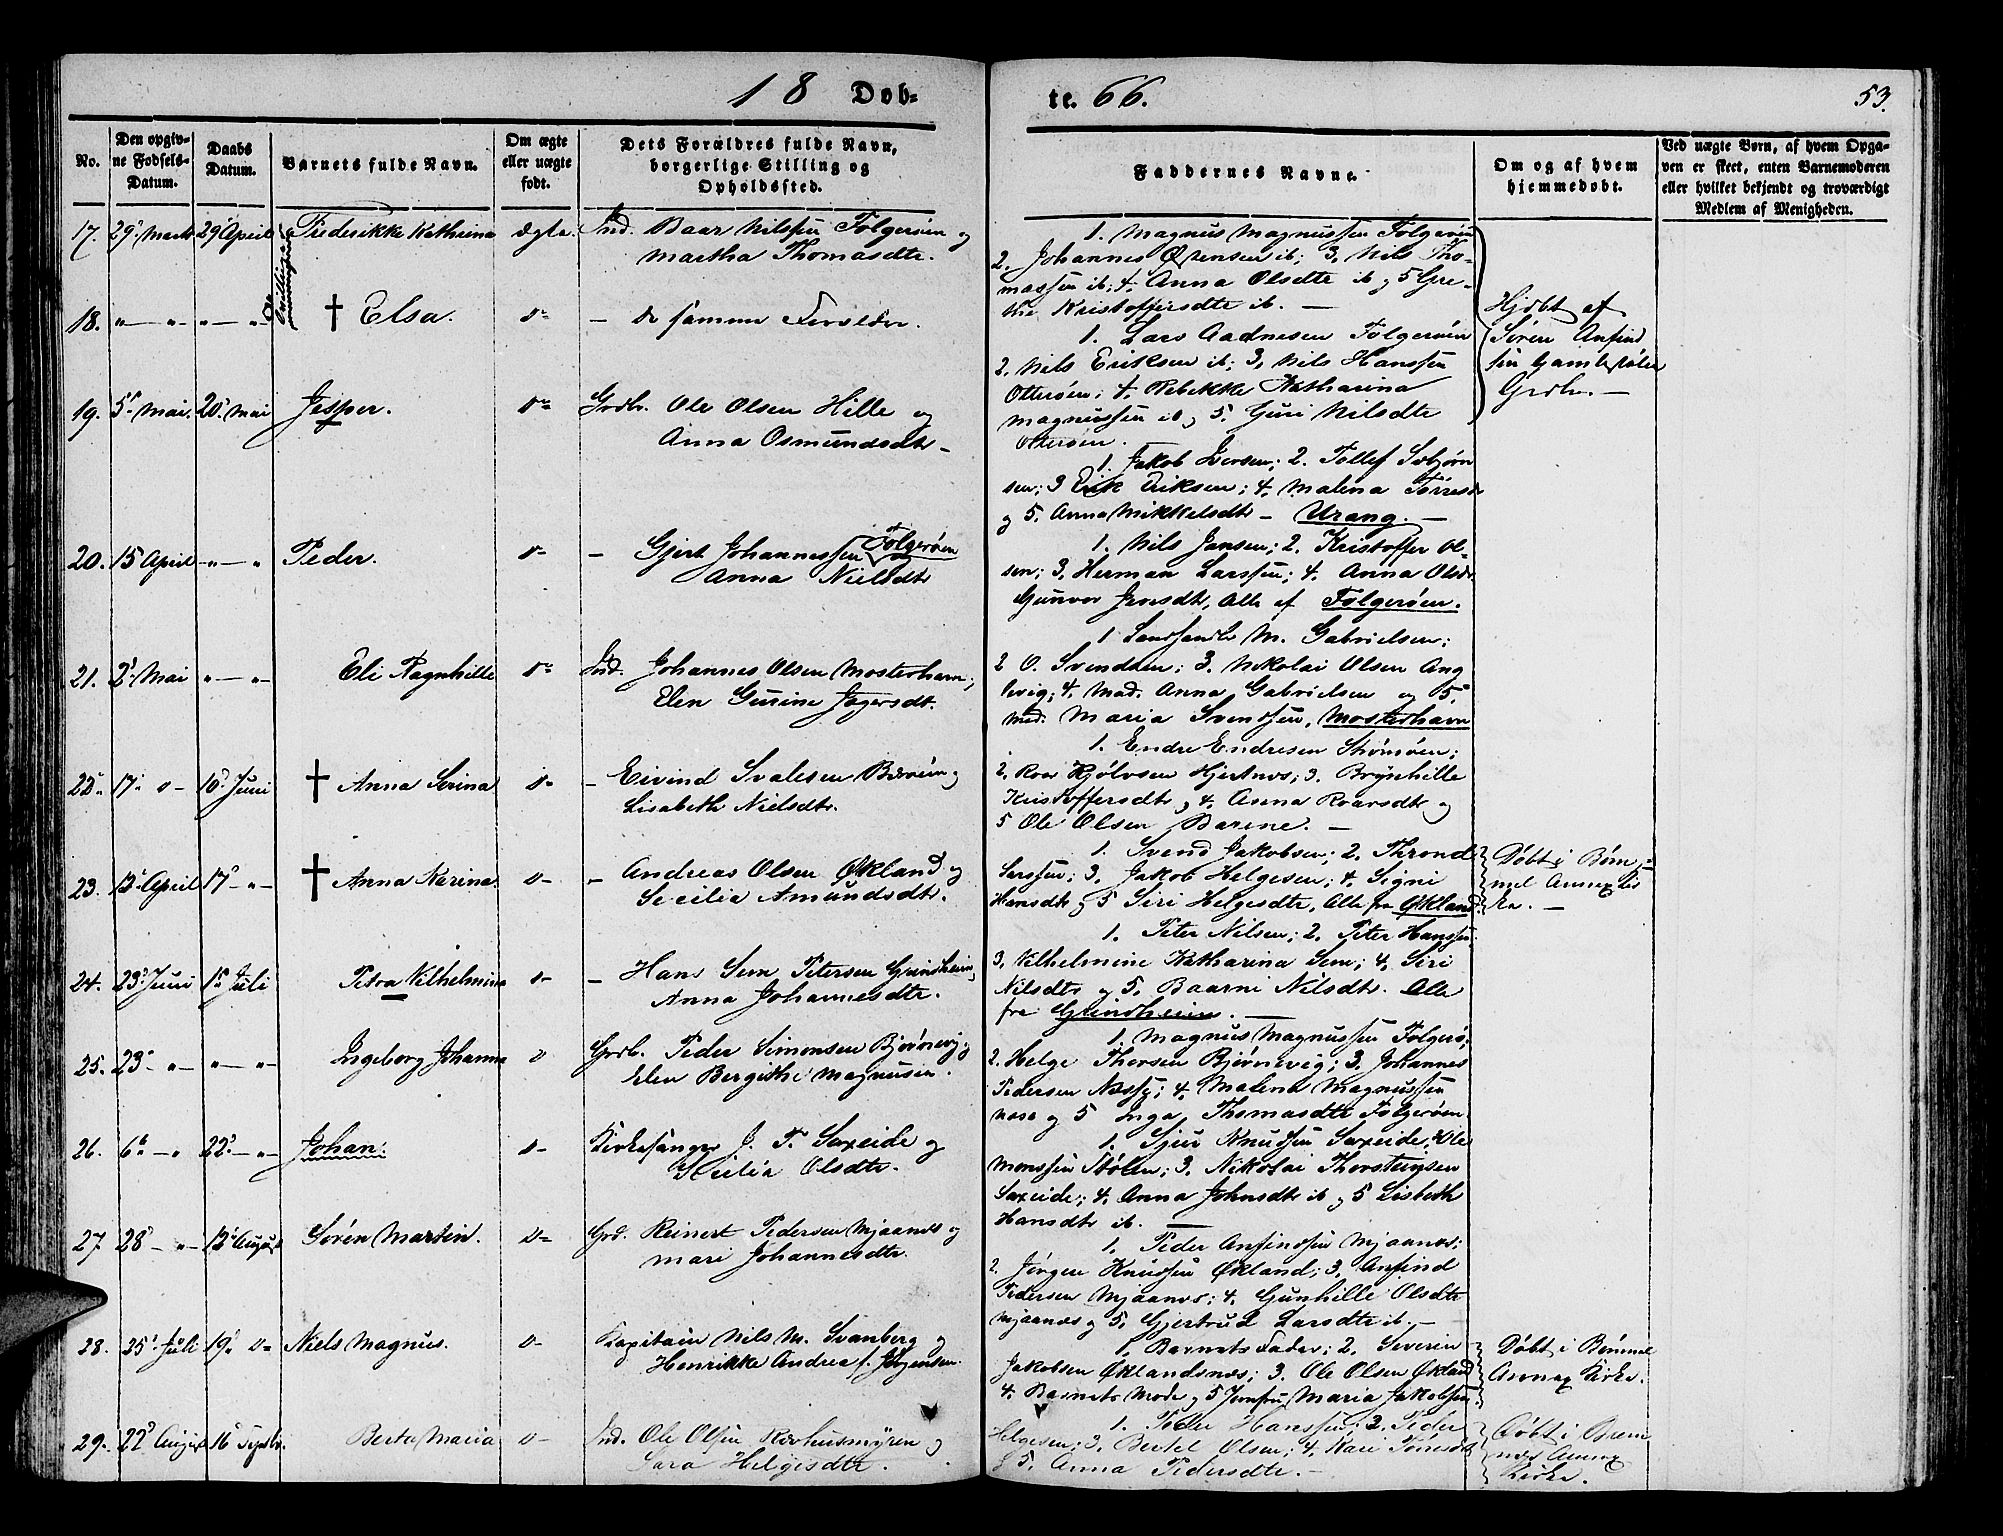 18 Døb-
te. 66.
53.
No.
Den opgiv-
ne Fødsels-
Datum.
Daabs
Datum.
Barnets fulde Navn.
Om ægte
eller uægte
født.
Dets Forældres fulde Navn,
borgerlige Stilling og
Opholdssted.
Faddernes Navne.
Om og af hvem
hjemmedøbt.
Ved uægte Børn, af hvem Opga-
ven er skeet, enten Barnemoderen
eller hvilket bekjendt og troværdigt
Medlem af Menigheden.
17. 29. Marts 29 April Frederikke Kathrina ægte. Ind. Baar Nilsen Folgerøen og
Martha Thomasdtr.
1. Magnus Magnussen Folgerøen
2. Johannes Østensen ib; 3. Nils Tho-
massen ib; 4. Anna Olsdtr ib og 5 Gre-
the Kristoffersdtr ib. —
18. " — " " — " † Elsa. do — de samme Forældre.
1. Lars Aadnesen Folgerøen
2. Nils Eriksen ib; 3. Nils Hanssen
Otterøen; 4. Rebekke Katharina
Magnussen ib og 5. Guri Nilsdtr
Otterøen.
Hjdøbt af
Søren Anfind
sen Gamlestølen
Grdbr. —
19. 5. Mai. 20. Mai Jesper. do Grdbr. Ole Olsen Hille og
Anna Osmundsdtr —
1. Jakob Iversen; 2. Tollef Sæbjørn
sen; 3 Erik Eriksen; 4. Malena Tørresdtr
og 5. Anna Mikkelsdtr — Urang. —
20. 15 April " — " Peder. do — Gjert Johannessen Folgerøen
Anna Nielsdtr
1. Nils Jansen; 2. Kristoffer Ol-
sen; 3. Herman Larssen; 4. Anna Olsdtr
Gunvor Iversdtr, Alle af Folgerøen.
21. 2. Mai " — " Eli Ragnhille do Ind. Johannes Olsen Mosterhavn;
Elen Gurine Jagersdtr.
1. Landhandler M. Gabrielsen;
2 O. Svendsen; 3. Nikolai Olsen Ang
levig; 4. Mad. Anna Gabrielsen og 5.
Mad. Maria Svendsen, Mosterhavn
22. 17. do — 10. Juni † Anna Serina do — Eivind Svalesen Bærøen og
Lisabeth Nielsdtr.
1. Endre Endresen Strømøen;
2. Roar Kjølvsen Hjertnes; 3. Brynhille
Kristoffersdtr og 4. Anna Roarsdtr og
5 Ole Olsen Barene. —
23. 13. April 17. — " † Anna Karina. do — Andreas Olsen Økland og
Secilia Amundsdtr.
1. Svend Jakobsen; 2. Thrond
Larssen; 3. Jakob Helgesen; 4. Signi
Hansdtr og 5 Siri Helgesdtr, Alle fra Økland.
Døbt i Bøm-
mel Annexkir
ke. —
24. 23. Juni 15. Juli Petra Vilhelmina do — Hans Sem Petersen Grindheim;
Anna Johannesdtr.
1. Peter Nilsen; 2. Peter Hanssen
3. Vilhelmine Katharina Sem; 4. Siri
Nilsdtr og 5. Baarni Nilsdtr. Alle
fra Grindheim. —
25. 23. — " " — " Ingeborg Johanna do Grdbr. Peder Simonsen Bjørnevig og
Elen Bergithe Magnussen.
1. Magnus Magnussen Folgerø;
2. Helge Thorsen Bjørnevig; 3. Johannes
Pedersen Næssø; 4. Malena Magnussen
næse og 5 Inga Thomasdtr Folgerøen
26. 6. — " 22. — " Johan. do Kirkesanger J. T. Saxeide og
Secilia Olsdtr.
1. Sjur Knudsen Saxeide; 2. Ole
Monssen Stølen; 3. Nikolai Thorsteinsen
Saxeide; 4. Anna Johnsdtr ib og 5 Lisbeth
Hansdtr ib. —
27 28. — " 12. August Søren Martin. do Grd. Reinert Pedersen Mjaanes og
Mari Johannesdtr.
1. Peder Anfindsen Mjaanes;
2. Jørgen Knudsen Økland; 3. Anfind
Pedersen Mjaanes; 4. Gunhille Olsdtr
Mjaanes og 5. Gjertrud Larsdtr ib. —
28. 25. Juli 19. do Niels Magnus. do Kapitain Nils M. Svanberg og
Henrikke Andrea f. Jørgensen.
1. Barnets Fader; 2. Severin
Jakobsen Øklandsnæs; 3. Ole Olsen Økland
4. Barnets Moder og 5 Jomfru Maria Jakobsen.
Døbt i Bømmel
Annex Kirke.
29. 22. August 16 Septbr. Berta Maria do Ind. Ole Olsen Rørhusmyren og
Sara Helgesdtr.
1. Peder Hanssen; 2. Peder
Helgesen; 3. Bertel Olsen; 4. Kari Tønesdtr
og 5. Anna Pedersdtr. —
Døbt i Brem
næs Annex
Kirke.